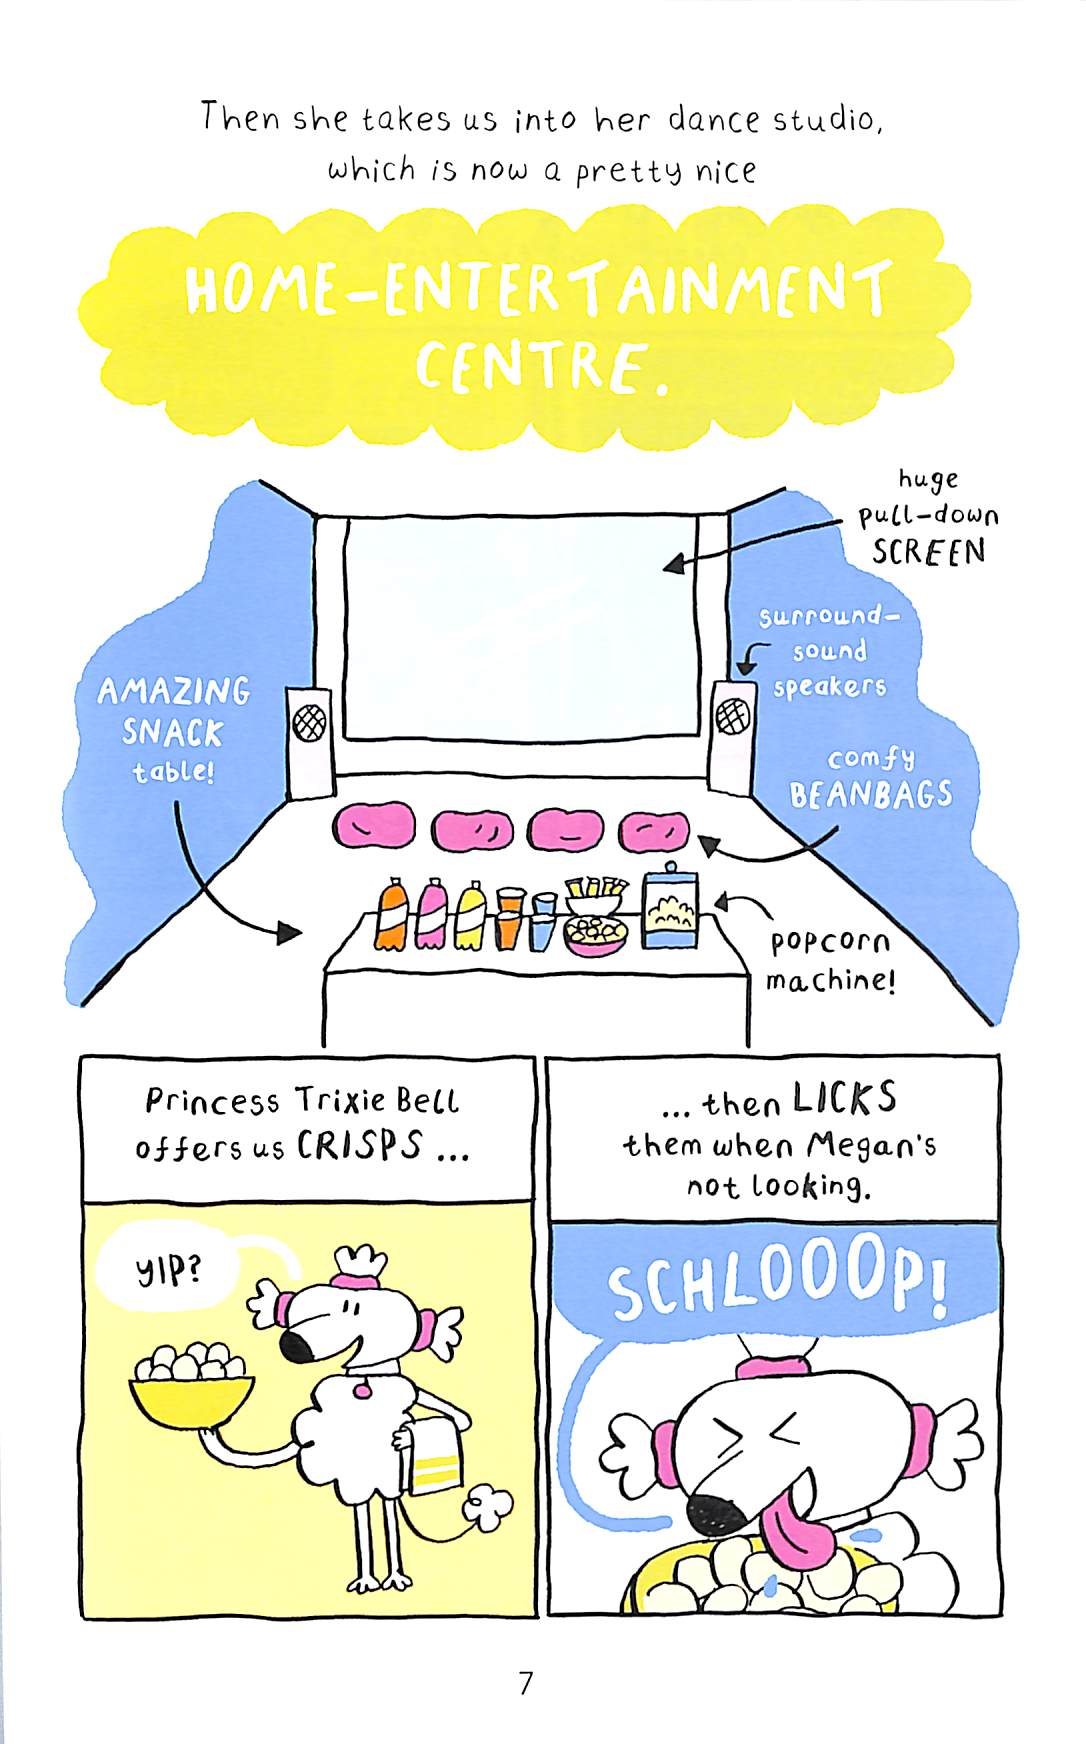 Then she takes us into her dance studio,
which is now a pretty nice
HOME-ENTERTAINMENT
CENTRE.
huge
pull-down
SCREEN
surround-
sound
speakers
AMAZING
SNACK
table!
comfy
BEANBAGS
popcorn
machine!
Princess Trixie Bell
offers us CRISPS ...
... then LICKS
them when Megan's
not looking.
YIP?
SCHLOOOP!
7